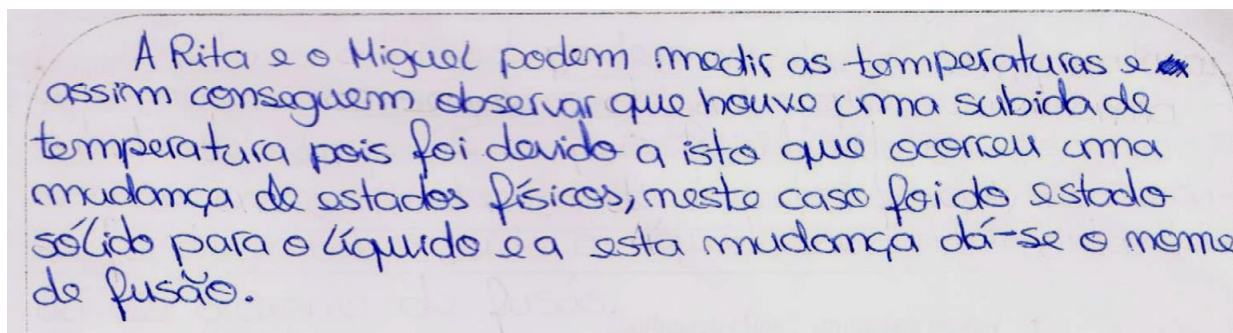 A Rita e o Miguel podem medir as temperaturas e
assim conseguem observar que houve uma subida de
temperatura pois foi devido a isto que ocorreu uma
mudança de estados físicos, neste caso foi do estado
sólido para o líquido e a esta mudança dá-se o nome
de fusão.